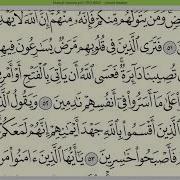 ض وَمَن يَتَوَلَّهُم مِّنكُمْ فَإِنَّهُۥ مِنْهُمْ إِنَّ ٱللَّهَ لَا يَهْدِ
٥١ فَتَرَى ٱلَّذِينَ فِى قُلُوبِهِم مَّرَضٌ يُسَٰرِعُونَ فِيهِمْ
تُصِيبَنَا دَآئِرَةٌ فَعَسَى ٱللَّهُ أَن يَأْتِىَ بِٱلْفَتْحِ أَوْ أَمْرٍ
عَلَىٰ مَآ أَسَرُّوا۟ فِىٓ أَنفُسِهِمْ نَٰدِمِينَ ٥٢ وَيَقُولُ ٱلَّذِ
ٱلَّذِينَ أَقْسَمُوا۟ بِٱللَّهِ جَهْدَ أَيْمَٰنِهِمْ إِنَّهُمْ لَمَعَكُمْ
فَأَصْبَحُوا۟ خَٰسِرِينَ ٥٣ يَٰٓأَيُّهَا ٱلَّذِينَ ءَامَنُوا۟ مَن